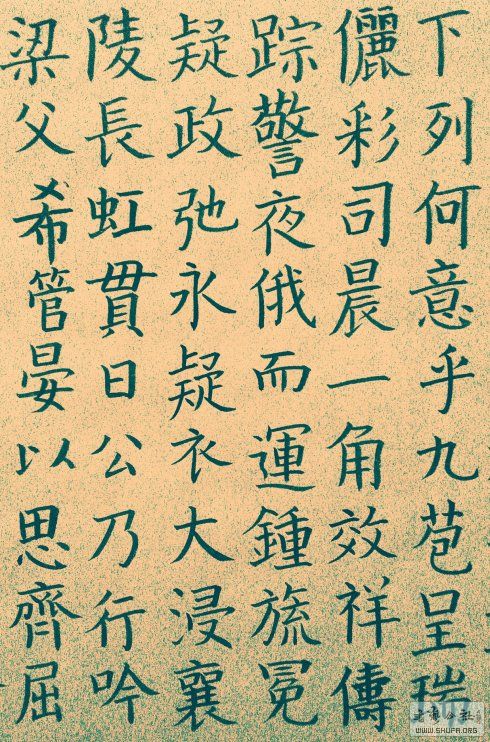 下列何意乎九苞呈瑞
儷彩司晨一角效祥儔
踪警夜俄而運鍾旒冕
疑政弛永疑衣大浸襄
陵長虹貫日公乃行吟
梁父希管晏以思齊屈
WWW.SHUFA.ORG